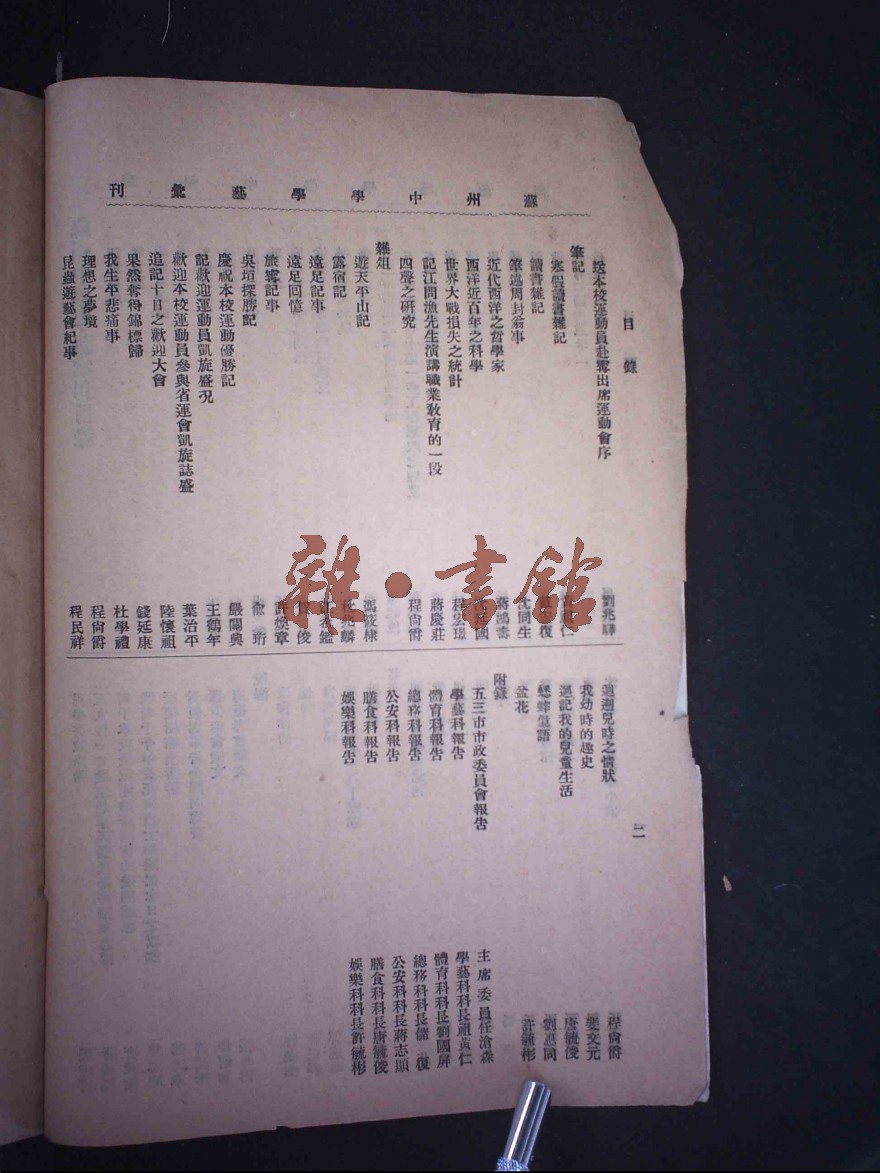 蘇州中學學藝彙刊
目錄
二
送本校運動員赴寗出席運動會序 劉兆驊
筆記
寒假讀書雜記
讀書雜記
筆述周封翁事 沈同生
近代西洋之哲學家 蔣鴻壽
西洋近百年之科學
世界大戰損失之統計 程宏璟
記江問漁先生演講職業敎育的一段 蔣慶莊
四聲之硏究 程尙爵
雜俎
遊天平山記 馮筱棣
露宿記
遠足記事
遠足回憶
旅寗記事 許煥章
吳垣探勝記
慶祝本校運動優勝記 嚴關興
記歡迎運動員凱旋盛况 王鶴年
歡迎本校運動員參與省運會凱旋誌盛 葉治平
追記十日之歡迎大會 陸懷祖
果然奪得錦標歸 錢延康
我生平悲痛事 杜學禮
理想之夢境 程尙爵
昆蟲遊藝會紀事 程民祥
追遡兒時之情狀 程尙爵
我幼時的趣史 婁文元
追記我的兒童生活 唐毓俊
蟋蟀童語 劉思同
盆花 許毓彬
附錄
五三市市政委員會報告 主席委員任滄森
學藝科報告 學藝科科長祖黃仁
體育科報告 體育科科長劉國屏
總務科報告 總務科科長儲復
公安科報告 公安科科長蔣志顯
膳食科報告 膳食科科長唐毓俊
娛樂科報告 娛樂科科長許毓彬
雜·書館